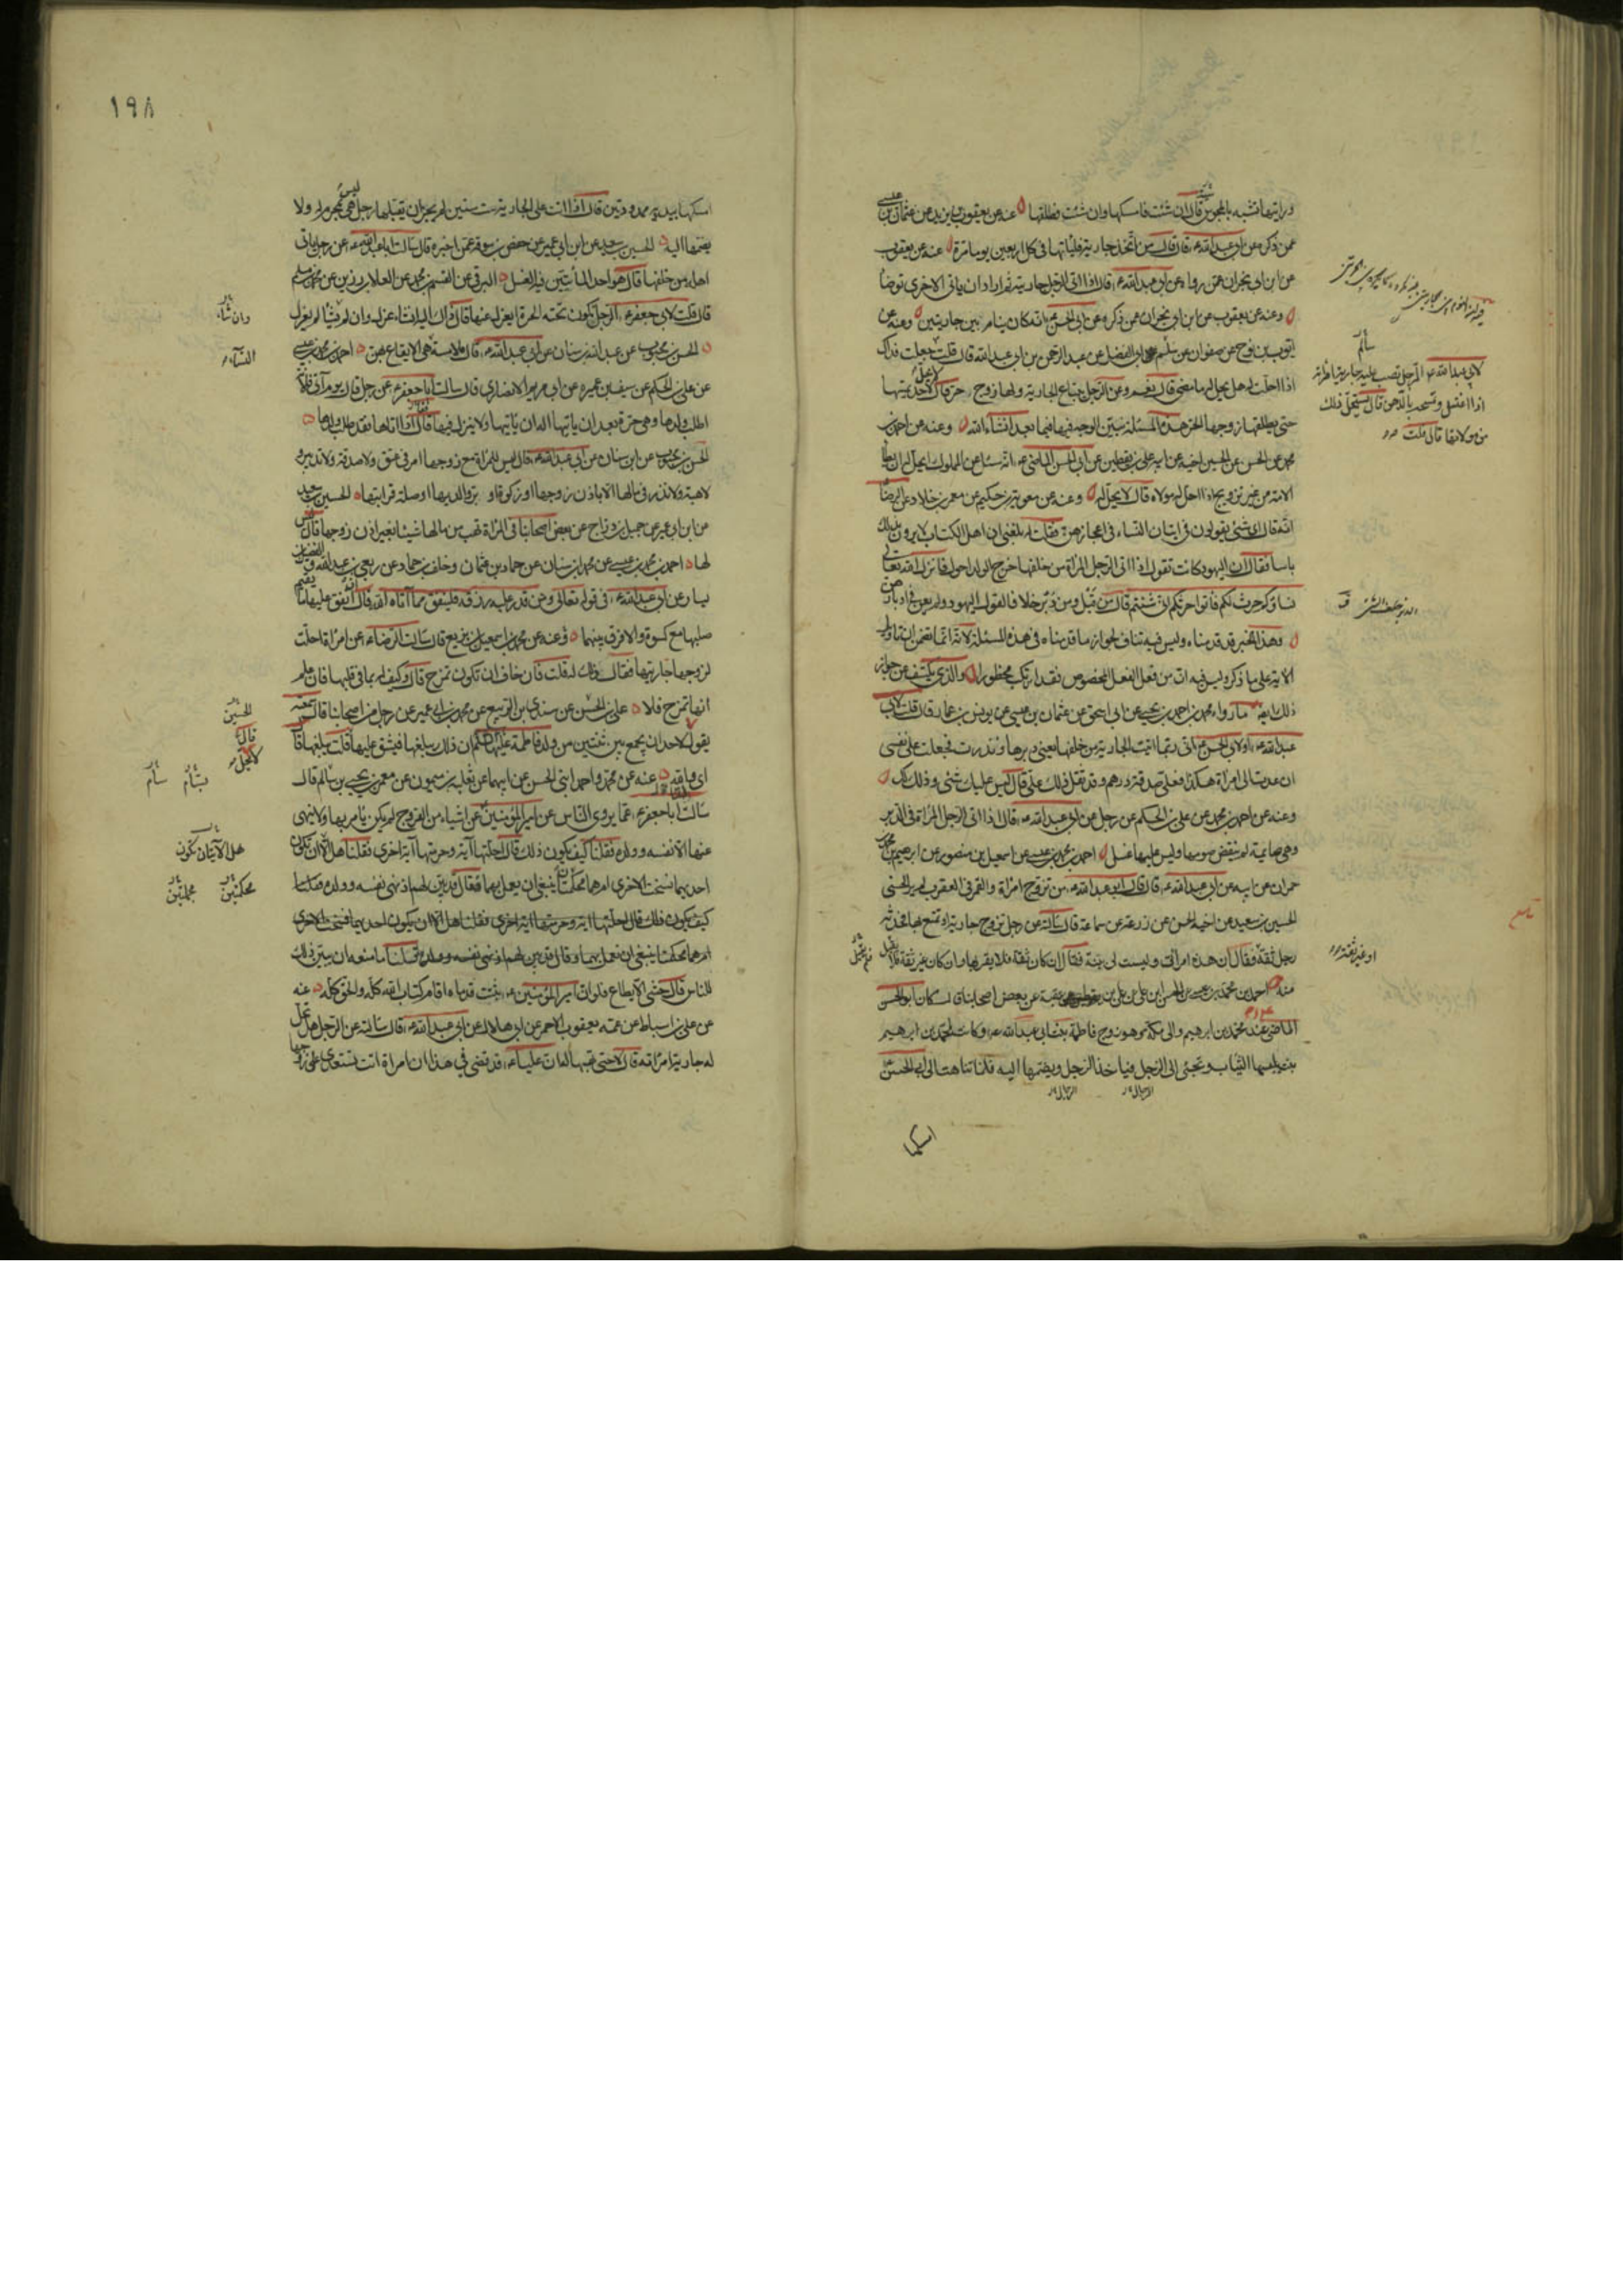 ورايتها تشبه بالمجوس قال ان شئت فامسكها وان شئت فطلقها عنه عن يعقوب بن يزيد عن عثمان بن عيسى
عمن ذكره عن ابي عبد الله ع قال قال من اتخذ جارية فلياتها في كل اربعين يوما مرة عنه عن يعقوب
عن ابن ابي نجران عمن رواه عن ابي عبد الله ع قال اذا اتى الرجل جاريته ثم اراد ان ياتي الاخرى توضأ
وعنه عن يعقوب عن ابن ابي نجران عمن ذكره عن ابي الحسن ع انه كان ينام بين جاريتين وعنه عن
ايوب بن نوح عن صفوان عن سالم ابي الفضل عن عبد الرحمن بن ابي عبد الله قال قلت جعلت فداك
اذا احلت له هل يحل له ما مضى قال نعم وعن الرجل يبتاع الجارية ولها زوج حر قال لا يحل لاحد يمسها
حتى يطلقها زوجها الحر هذه المسئلة نبين الوجه فيها فيما بعد انشاء الله وعنه عن احمد بن
محمد عن الحسن عن الحسين اخيه عن ابيه علي بن يقطين عن ابي الحسن الماضي ع انه سئل عن المملوك ايحل له ان يطأ
الامة من غير تزويج اذا احل له مولاه قال لا يحل له وعنه عن معوية بن حكيم عن معمر بن خلاد عن الرضا
انه قال اي شئ يقولون في اتيان النساء في اعجازهن فقلت له بلغني ان اهل الكتاب لا يرون بذلك
باسا فقال ان اليهود كانت تقول اذا اتى الرجل المراة من خلفها خرج الولد احول فانزل الله تعالى
نساؤكم حرث لكم فاتوا حرثكم انى شئتم قال من قبل ومن دبر خلافا لقول اليهود ولم يعن في ادبارهن
وهذا الخبر قد قدمناه وليس فيه تناف لجواز ما قدمناه في هذه المسئلة لانه انما تضمن ان تاويل
الاية على ما ذكره وليس فيه ان من فعل الفعل المخصوص فقد ارتكب محظورا والذي يكشف عن جواز
ذلك ايضا ما رواه محمد بن احمد بن يحيى عن ابي اسحق عن عثمان بن عيسى عن يونس بن عمار قال قلت لابي
عبد الله ع او لابي الحسن ع اني ربما اتيت الجارية من خلفها يعني دبرها ونذرت فجعلت على نفسي
ان عدت الى امراة هكذا فعلي صدقة درهم وقد ثقل ذلك علي قال ليس عليك شئ وذلك لك
وعنه عن احمد بن محمد عن علي بن الحكم عن رجل عن ابي عبد الله ع قال اذا اتى الرجل المراة في الدبر
وهي صائمة لم ينقض صومها وليس عليها غسل احمد بن محمد بن عيسى عن اسمعيل بن منصور عن ابرهيم بن محمد
حمران عن ابيه عن ابي عبد الله ع قال قال ابو عبد الله ع من تزوج امراة والقمر في العقرب لم ير الحسنى
الحسين بن سعيد عن اخيه الحسن عن زرعة عن سماعة قال سالته عن رجل تزوج جارية او تمتع بها فحدثه
رجل ثقة فقال ان هذه امراتي وليست لي بينة فقال ان كان ثقة فلا يقربها وان كان غير ثقة فلا يقبل
منه احمد بن محمد بن عيسى عن الحسن ابن علي عن علي بن عقبة عن بعض اصحابنا قال كان ابو الحسن
الماضي ع عند محمد بن ابرهيم والي مكة وهو زوج فاطمة بنت ابي عبد الله ع وكانت لمحمد بن ابرهيم
بنت يلبسها الثياب وتجئ الى الرجل فياخذ الرجل ويضمها اليه فلما تناهت الى ابي الحسن ع
سالم
لابي عبد الله ع الرجل تصب عليه جارية امراته
اذا اغتسل وتمسحه بالدهن قال يستحل ذلك
من مولاتها قال قلت
او غير ثقة
الرجال
الرجال
امسكها
١٩٨
امسكها بيديه ممدودتين قال اذا اتت على الجارية ست سنين لم يجز ان يقبلها رجل ليس هي بمحرم له ولا
يضمها اليه الحسين بن سعيد عن ابن ابي عمير عن حفص بن سوقة عمن اخبره قال سالت ابا عبد الله ع عن رجل ياتي
اهله من خلفها قال هو احد الماتيين فيه الغسل البرقي عن القسم بن محمد عن العلا بن رزين عن محمد بن مسلم
قال قلت لابي جعفر ع الرجل تكون تحته الحرة ايعزل عنها قال ذاك اليه ان شاء عزل وان لم يشا لم يعزل
الحسن بن محبوب عن عبد الله بن سنان عن ابي عبد الله ع قال ملامسة هي الايقاع بهن احمد بن محمد بن عيسى
عن علي بن الحكم عن سيف بن عميره عن ابي مريم الانصاري قال سالت ابا جعفر ع عن رجل قال يوم آتي فلانة
اطلب ولدها وهي حرة بعد ان ياتيها اله ان ياتيها ولا ينزل فيها فقال اذا اتاها فقد طلب ولدها
الحسن بن محبوب عن ابن سنان عن ابي عبد الله ع قال ليس للمراة مع زوجها امر في عتق ولا صدقة ولا تدبير
لا هبة ولا نذر في مالها الا باذن زوجها او زكوة او بر والديها او صلة قرابتها الحسين بن سعيد
عن ابن ابي عمير عن جميل بن دراج عن بعض اصحابنا في المراة تهب من مالها شيئا بغير اذن زوجها قال ليس
لها احمد بن محمد بن عيسى عن محمد بن سنان عن حماد بن عثمان وخلف بن حماد عن ربعي بن عبد الله والفضيل بن
يسار عن ابي عبد الله ع في قوله تعالى ومن قدر عليه رزقه فلينفق مما آتاه الله قال ان انفق عليها ما يقيم
صلبها مع كسوة والا فرق بينهما وعنه عن محمد بن اسمعيل بن بزيع قال سالت الرضا ع عن امراة احلت
لزوجها جاريتها فقال ذلك له قلت فان خاف ان تكون تمزح قال وكيف له بما في قلبها فان علم
انها تمزح فلا علي بن الحسن عن سندي بن الربيع عن محمد بن ابي عمير عن رجل من اصحابنا قال سمعته
يقول لا احد ان يجمع بين ثنتين من ولد فاطمة عليها السلام ان ذلك يبلغها فيشق عليها قلت يبلغها قال
اي والله عنه عن محمد واحمد ابني الحسن عن ابيهما عن ثعلبة بن ميمون عن معمر بن يحيى بن سالم قال
سالت ابا جعفر ع عما يروي الناس عن امير المؤمنين عن اشياء من الفروج لم يكن يامر بها ولا ينهى
عنها الا نفسه وولده فقلنا كيف يكون ذلك قال احلتها آية وحرمتها آية اخرى فقلنا هل الا ان تكون
احديهما نسخت الاخرى ام هما محكمتان ينبغي ان يعمل بهما فقال قد بين لهم اذ نهى نفسه وولده قلنا
كيف يكون ذلك قال احلتها اية وحرمتها اية اخرى فقلنا هل الا ان يكون احديهما نسخت الاخرى
ام هما محكمتان ينبغي ان نعمل بهما وقال قد بين لهم اذ نهى نفسه وولده قلنا ما منعه ان يبين ذلك
للناس قال خشى الا يطاع فلو ان امير المؤمنين ع ثبتت قدماه اقام كتاب الله كله والحق كله عنه
عن علي بن اسباط عن عمه يعقوب الاحمر عن ابي هلال عن ابي عبد الله ع قال سالته عن الرجل هل تحل
له جارية امراته قال لا حتى تهبها له ان عليا ع قد قضى في هذا ان امراة اتت تستعدي على زوجها
وان شاء
النساء
الحسين
قال
لا يحل
بسام
سام
هل الا ان تكون
محكمتين